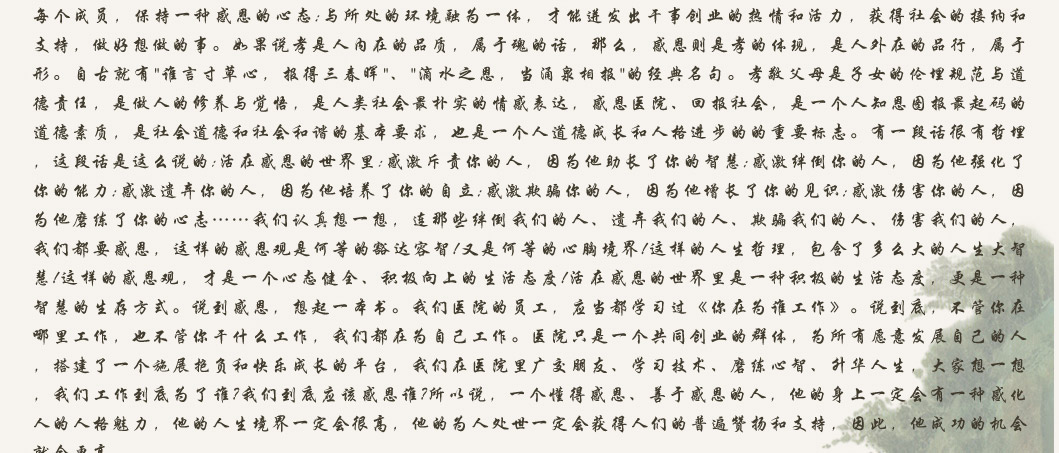 每个成员，保持一种感恩的心态;与所处的环境融为一体，才能迸发出干事创业的热情和活力，获得社会的接纳和
支持，做好想做的事。如果说孝是人内在的品质，属于魂的话，那么，感恩则是孝的体现，是人外在的品行，属于
形。自古就有"谁言寸草心，报得三春晖"、"滴水之恩，当涌泉相报"的经典名句。孝敬父母是子女的伦理规范与道
德责任，是做人的修养与觉悟，是人类社会最朴实的情感表达，感恩医院、回报社会，是一个人知恩图报最起码的
道德素质，是社会道德和社会和谐的基本要求，也是一个人道德成长和人格进步的的重要标志。有一段话很有哲理
，这段话是这么说的:活在感恩的世界里:感激斥责你的人，因为他助长了你的智慧;感激绊倒你的人，因为他强化了
你的能力;感激遗弃你的人，因为他培养了你的自立;感激欺骗你的人，因为他增长了你的见识;感激伤害你的人，因
为他磨练了你的心志……我们认真想一想，连那些绊倒我们的人、遗弃我们的人、欺骗我们的人、伤害我们的人，
我们都要感恩，这样的感恩观是何等的豁达容智!又是何等的心胸境界!这样的人生哲理，包含了多么大的人生大智
慧!这样的感恩观，才是一个心态健全、积极向上的生活态度!活在感恩的世界里是一种积极的生活态度，更是一种
智慧的生存方式。说到感恩，想起一本书。我们医院的员工，应当都学习过《你在为谁工作》。说到底，不管你在
哪里工作，也不管你干什么工作，我们都在为自己工作。医院只是一个共同创业的群体，为所有愿意发展自己的人
，搭建了一个施展抱负和快乐成长的平台，我们在医院里广交朋友、学习技术、磨练心智、升华人生。大家想一想
，我们工作到底为了谁?我们到底应该感恩谁?所以说，一个懂得感恩、善于感恩的人，他的身上一定会有一种感化
人的人格魅力，他的人生境界一定会很高，他的为人处世一定会获得人们的普遍赞扬和支持，因此，他成功的机会
就会更高